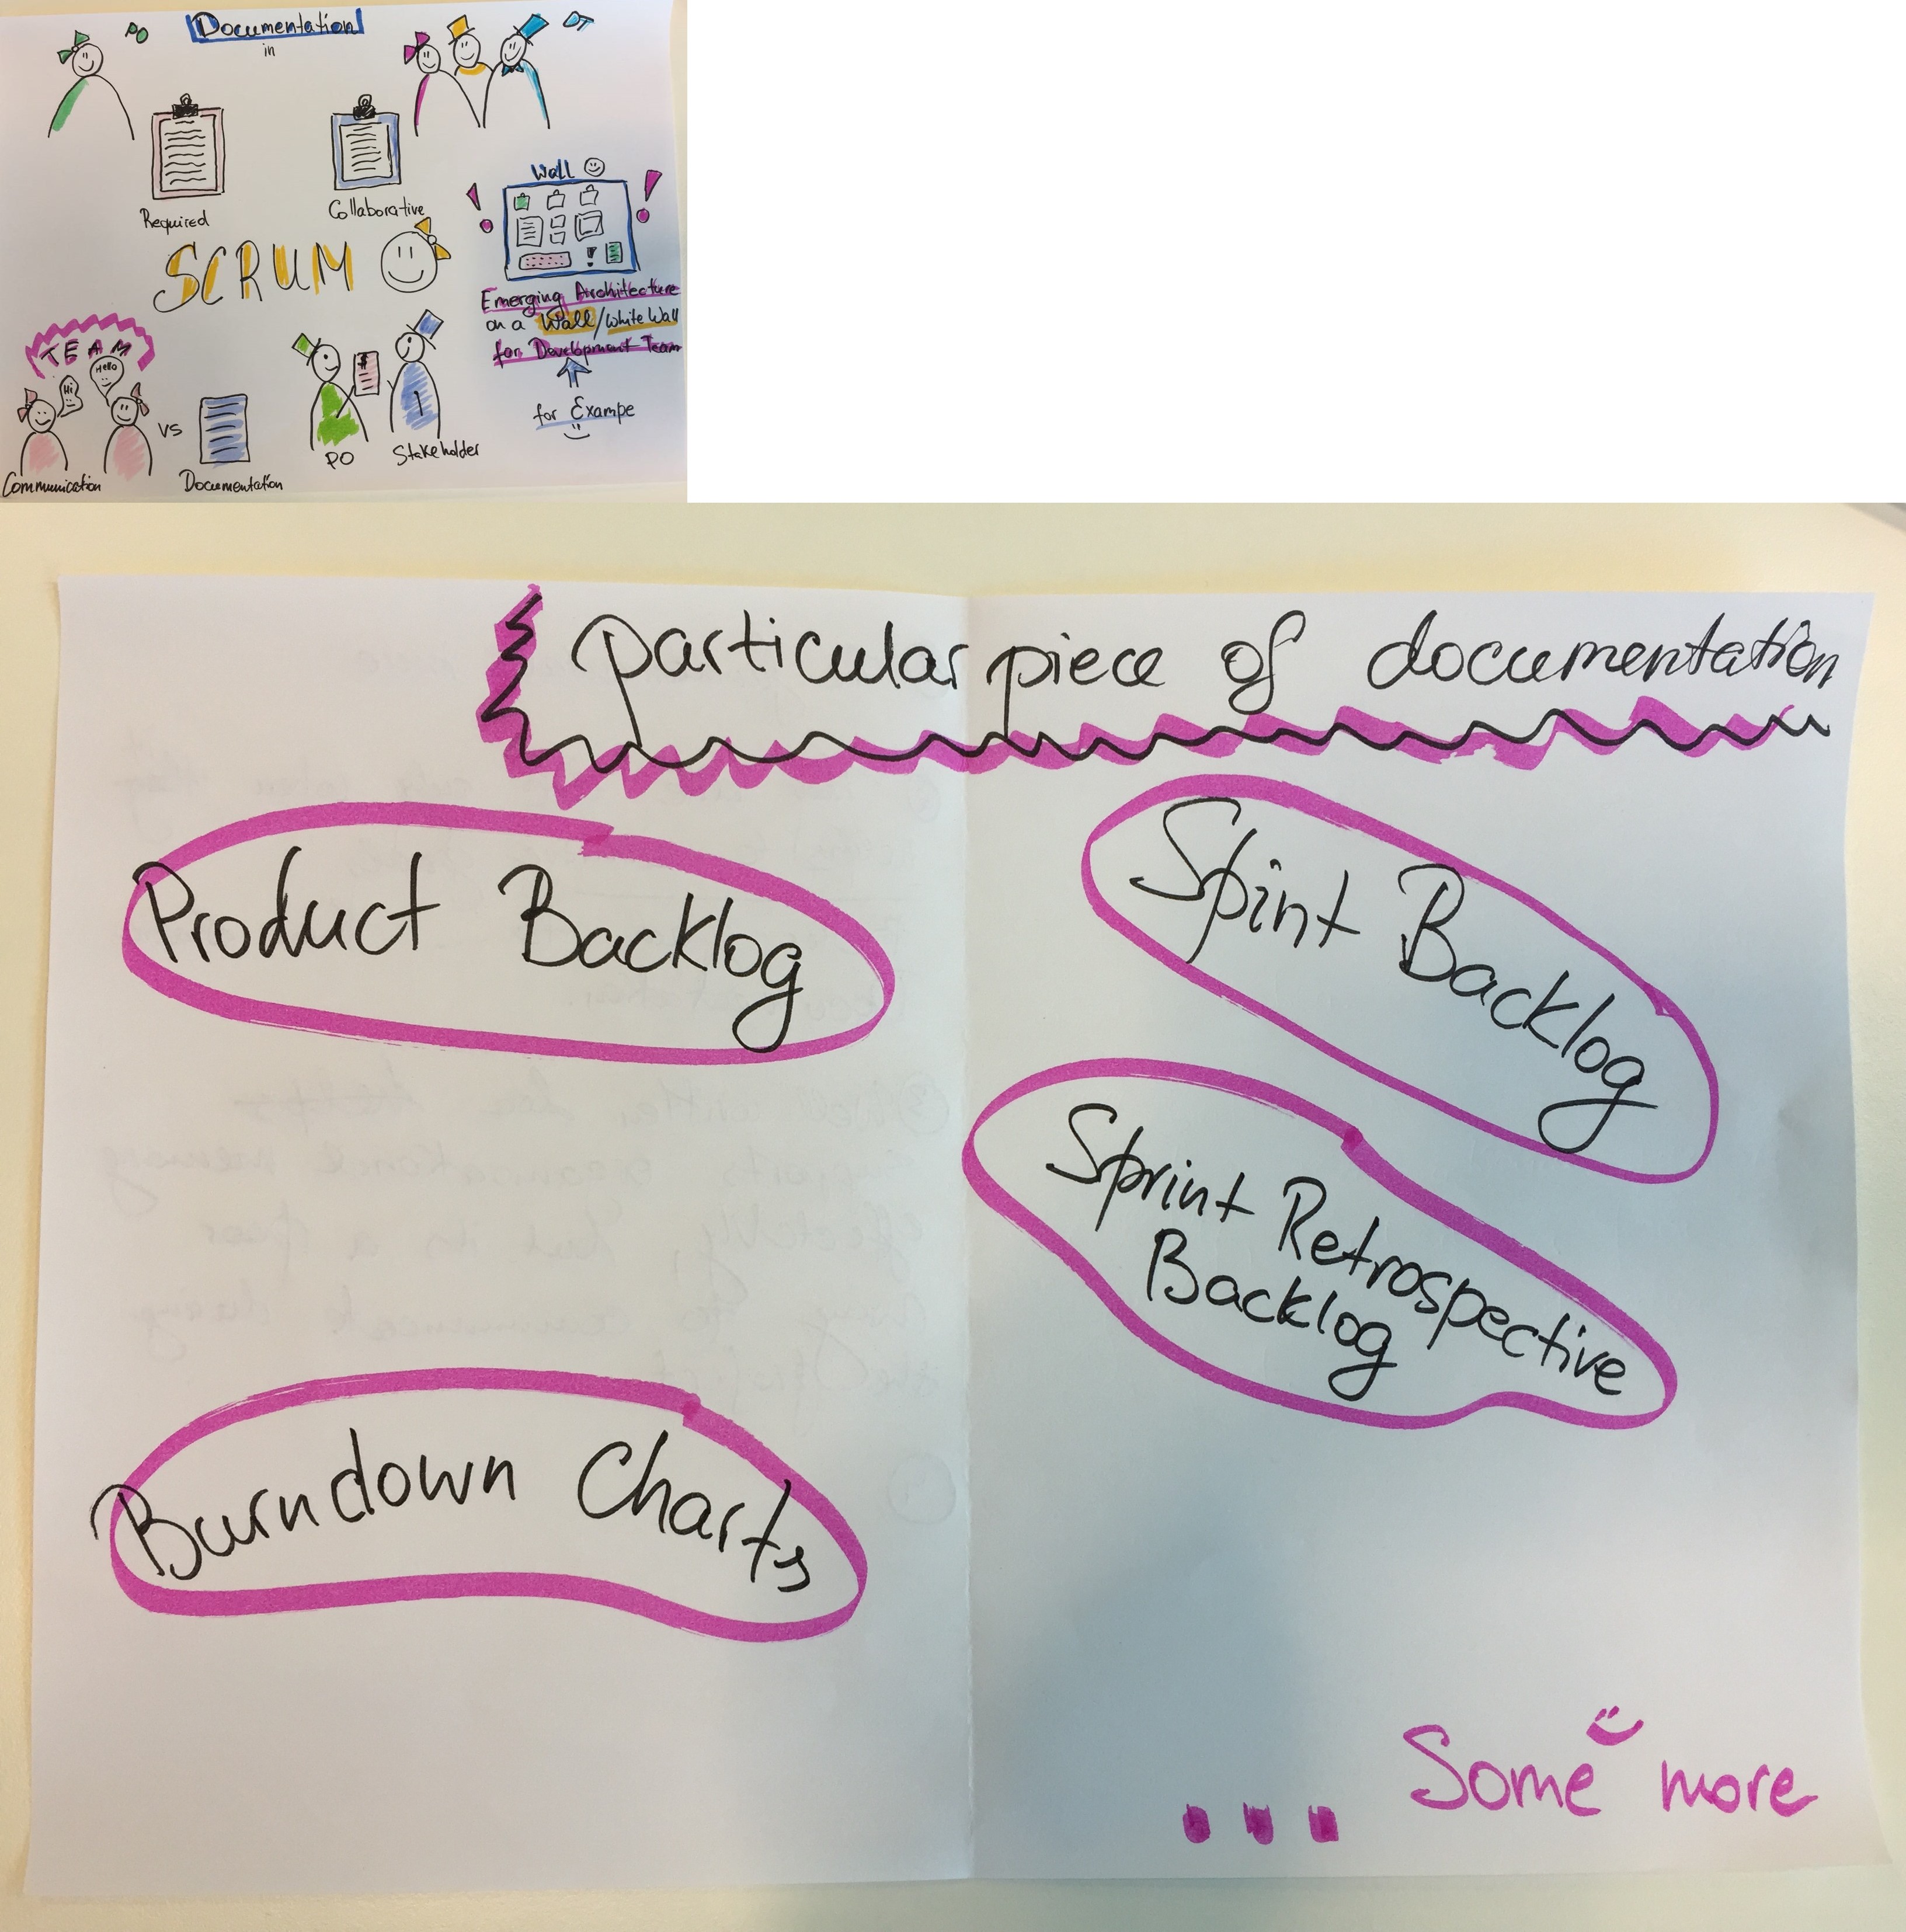 PO
Documentation
in
DT
Required
Collaborative
Wall
SCRUM
Emerging Architecture
on a Wall/White Wall
for Development Team
for Exampe
TEAM
Hi
Hello
vs
Communication
Documentation
PO
Stakeholder
particular piece of documentation
Product Backlog
Spint Backlog
Sprint Retrospective
Backlog
Burndown Charts
... Some more